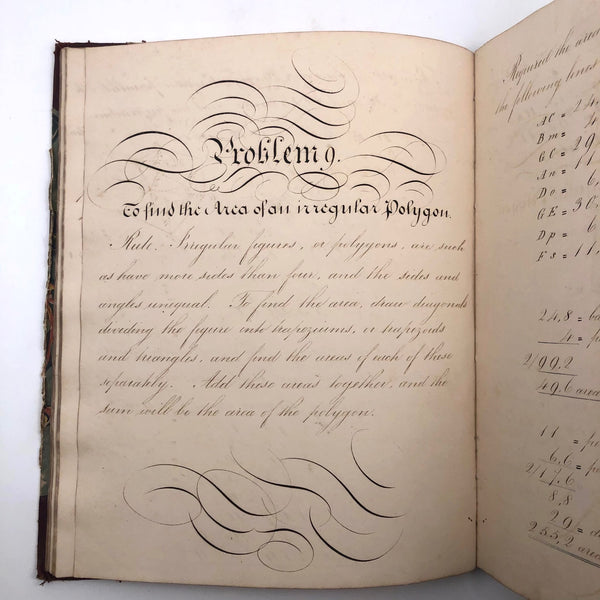 Problem 9.
To find the Area of an irregular Polygon.
Rule. Irregular figures, or polygons, are such
as have more sides than four, and the sides and
angles unequal. To find the area, draw diagonals
dividing the figure into trapeziums, or trapezoids
and triangles, and find the areas of each of these
separately. Add these areas together, and the
sum will be the area of the polygon.
Required the area
the following lines
AC = 24,
Bm = 4
GC = 29
An = 11
Do = 6,
GE = 30,
Dp = 6
Fs = 11,
24,8 = ba
4 = pe
2/99,2
49,6 area
11 = pe
6,6 = pe
2/17,6
8,8
29 = di
255,2 area